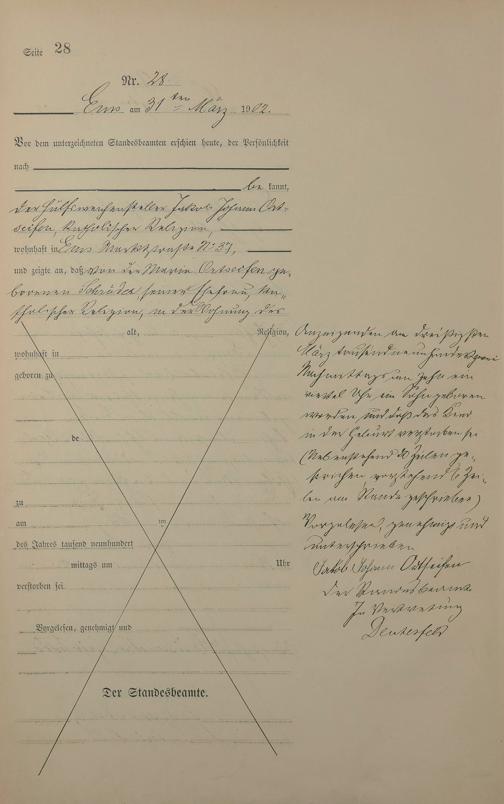 Seite 28
Nr. 28
Ems am 31ten März 1902.
Vor dem unterzeichneten Standesbeamten erschien heute, der Persönlichkeit
nach
be kannt,
der Hülfsweichensteller Jakob Johann Ort-
seifen, katholischer Religion,
wohnhaft in Ems Marktstraße No 37,
und zeigte an, daß von der Maria Ortseifen ge-
borenen Schröder, seiner Ehefrau, ka-
tholischer Religion, in der Wohnung des
alt, Religion,
wohnhaft in
geboren zu
de
zu
am im
des Jahres tausend neunhundert
mittags um Uhr
verstorben sei.
Vorgelesen, genehmigt und
Der Standesbeamte.
Anzeigenden am dreißigsten
März tausendneunhundertzwei
Nachmittags um zehn ein
viertel Uhr, ein Sohn geboren
worden, und daß das Kind
in der Geburt verstorben sei
(Nebenstehend Zeilen ge-
strichen vorstehend 6 Zei-
len am Rande geschrieben)
Vorgelesen, genehmigt und
unterschrieben
Jakob Johann Ortseifen
Der Standesbeamte
In Vertretung